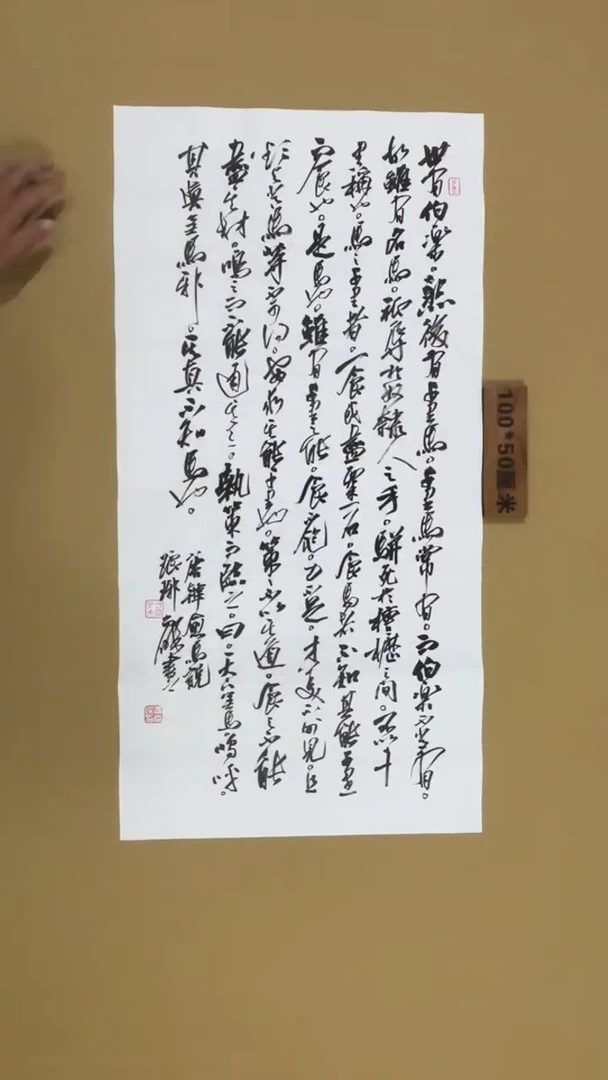 世有伯樂。然後有千里馬。千里馬常有。而伯樂不常有。
故雖有名馬。祇辱於奴隸人之手。駢死於槽櫪之間。不以千
里稱也。馬之千里者。一食或盡粟一石。食馬者不知其能千里
而食也。是馬也。雖有千里之能。食不飽。力不足。才美不外見。且
欲與常馬等不可得。安求其能千里也。策之不以其道。食之不能
盡其材。鳴之而不能通其意。執策而臨之。曰。天下無馬。嗚呼。
其真無馬邪。其真不知馬也。
唐韓愈馬說
書
100*50厘米